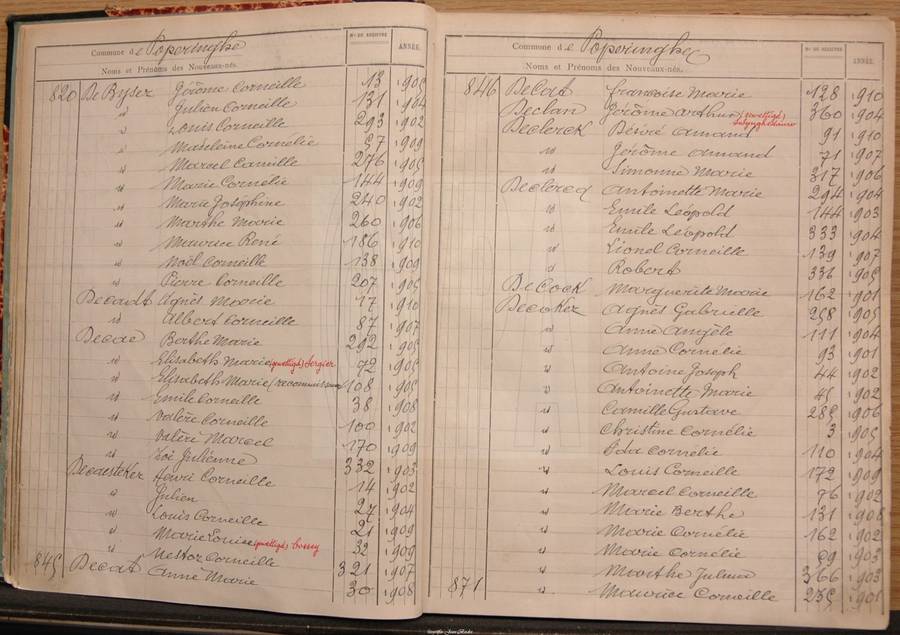 Commune de Poperinghe
Nos DE REGISTRE
ANNÉE.
Noms et Prénoms des Nouveaux-nés.
820 De Byser Jérôme Corneille 13 1905
" Julien Corneille 131 1904
" Louis Corneille 293 1902
" Madeleine Cornélie 57 1909
" Marcel Camille 276 1905
" Marie Cornélie 144 1909
" Marie Joséphine 240 1902
" Marthe Marie 260 1906
" Maurice René 186 1910
" Noël Corneille 138 1909
" Pierre Corneille 207 1905
Decadt Agnès Marie 17 1910
id Albert Corneille 87 1907
Decae Berthe Marie 292 1905
id Elisabeth Marie (gewettigd) Bergier 72 1905
id Elisabeth Marie (reconnaissance 108 1905
id Emile Corneille 38 1908
id Valère Corneille 100 1902
id Valère Marcel 170 1909
id Zoé Julienne 332 1903
Decaesteker Henri Corneille 14 1902
id Julien 27 1904
id Louis Corneille 21 1909
id Marie Louise (gewettigd) Cossey 32 1909
id Nestor Corneille 321 1907
845 Decat Anne Marie 30 1908
Commune de Poperinghe
Nos DE REGISTRE
ANNÉE.
Noms et Prénoms des Nouveaux-nés.
846 Decat Françoise Marie 128 1910
Declan Jérôme Arthur (gewettigd) 360 1904
Declerck Désiré Amand 91 1910
id Jérôme Amand 71 1907
id Simonne Marie 317 1906
Declercq Antoinette Marie 294 1904
id Emile Léopold 144 1903
id Emile Léopold 333 1904
id Lionel Corneille 139 1907
id Robert 336 1905
De Cock Marguerite Marie 162 1901
Decoker Agnès Gabrielle 258 1905
id Anne Angèle 111 1904
id Anne Cornélie 93 1901
id Antoine Joseph 44 1902
id Antoinette Marie 45 1902
id Camille Gustave 285 1906
id Christine Cornélie 3 1905
id Ida Cornélie 110 1904
id Louis Corneille 172 1909
id Marcel Corneille 76 1902
id Marie Berthe 131 1908
id Marie Cornélie 162 1902
id Marie Cornélie 99 1903
id Marthe Julma 366 1903
871 id Maurice Corneille 235 1901